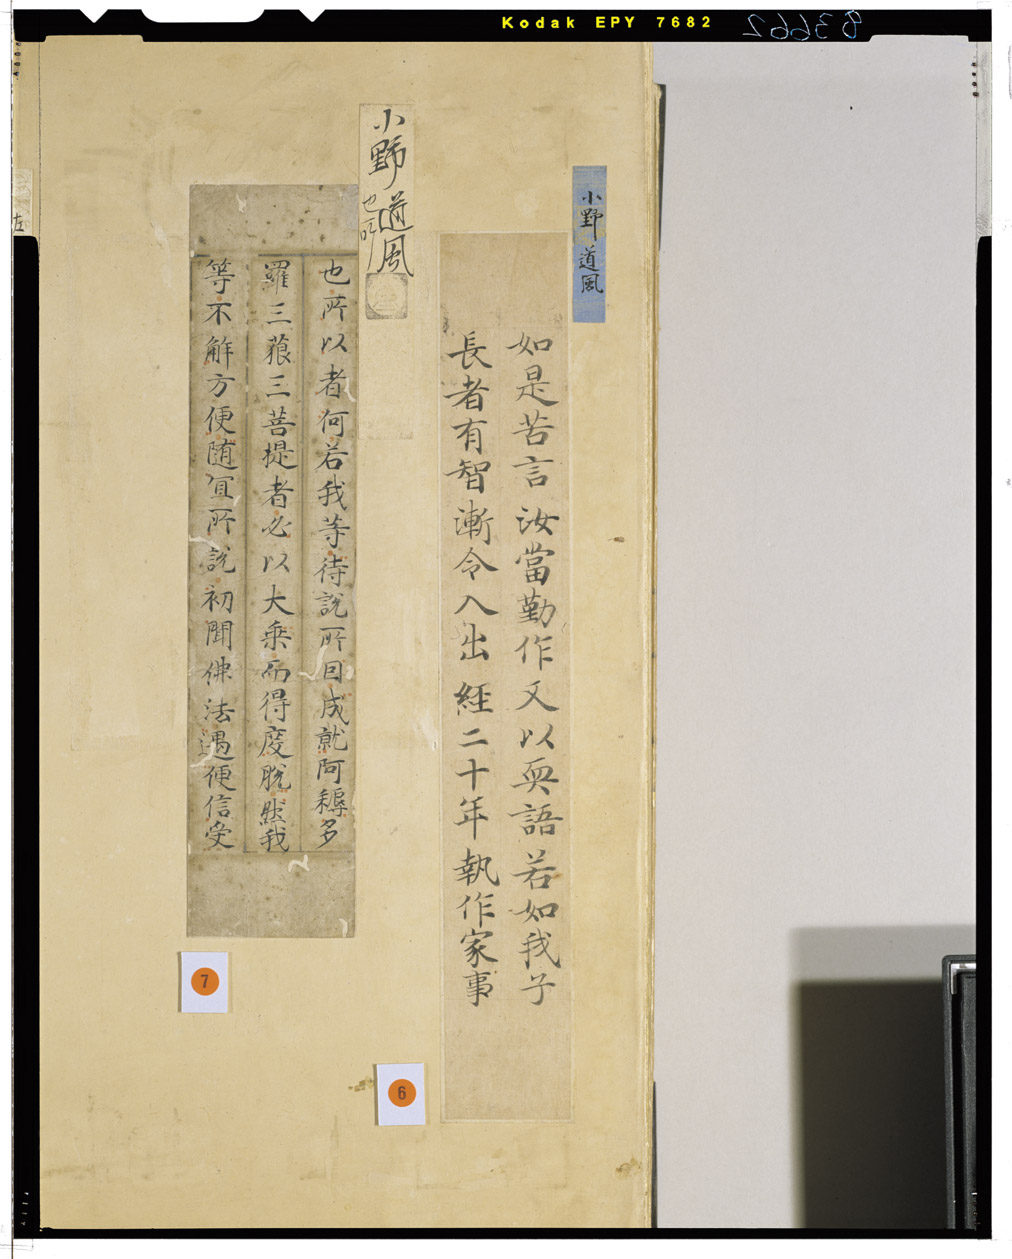 Kodak EPY 7682
83662
小野道風
如是苦言汝當勤作又以耎語若如我子
長者有智漸令入出経二十年執作家事
小野道風
也所
也所以者何若我等待說所因成就阿耨多
羅三藐三菩提者必以大乘而得度脫然我
等不解方便随冝所說初聞佛法遇便信受
6
7
左